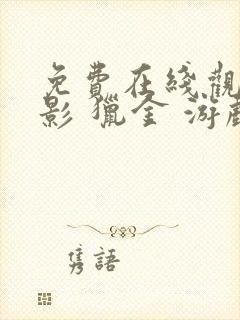 免費在綫觀
影 獵金 游戲
隽語